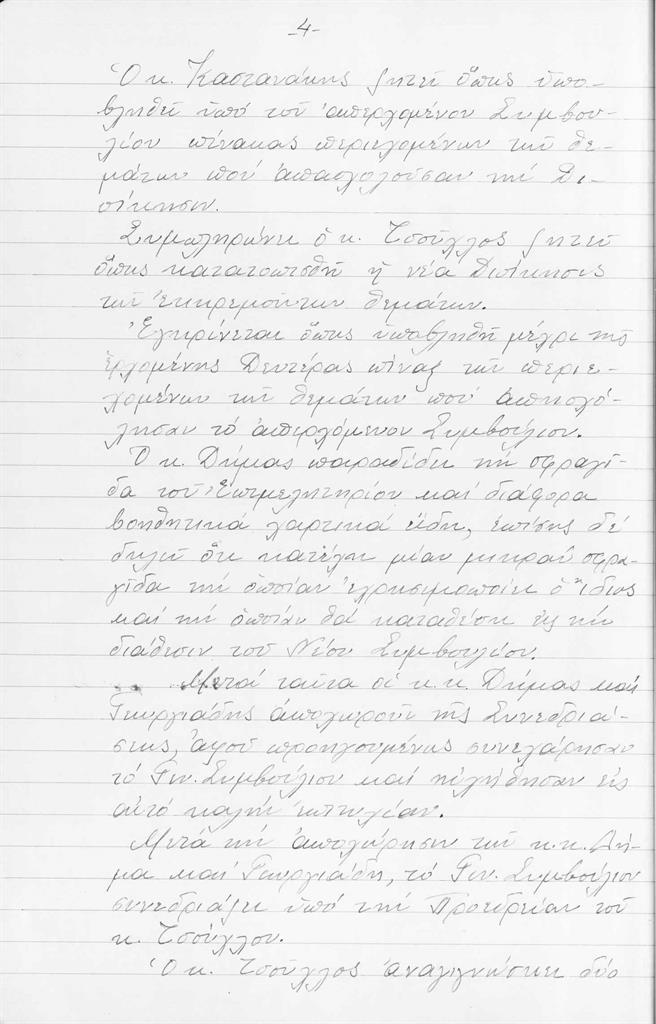 -4-
Ὁ κ. Καστανάκης ζητεῖ ὅπως ὑπο-
βληθῆ ὑπό τοῦ ἀπερχομένου Συμβου-
λίου πίνακας περιεχομένων τῶν θε-
μάτων πού ἀπασχολοῦσαν τήν Δι-
οίκησιν.
Συμπληρώνει ὁ κ. Τσούχλος ζητεῖ
ὅπως κατατοπισθῆ ἡ νέα Διοίκησις
τῶν ἐκκρεμούντων θεμάτων.
Ἐγκρίνεται ὅπως ὑποβληθῆ μέχρι τῆς
ἐρχομένης Δευτέρας πίναξ τῶν περιε-
χομένων τῶν θεμάτων πού ἀπησχό-
λησαν τό ἀπερχόμενον Συμβούλιον.
Ὁ κ. Δήμας παραδίδει τήν σφραγῖ-
δα τοῦ Ἐπιμελητηρίου καί διάφορα
βοηθητικά χαρτικά εἴδη, ἐπίσης δέ
δηλοῖ ὅτι κατέχει μίαν μικράν σφρα-
γῖδα τήν ὁποίαν ἐχρησιμοποίει ὁ ἴδιος
καί τήν ὁποίαν θά καταθέση εἰς τήν
διάθεσιν τοῦ Νέου Συμβουλίου.
Μετά ταῦτα οἱ κ.κ. Δήμας καί
Γεωργιάδης ἀποχωροῦν τῆς Συνεδριά-
σεως, ἀφοῦ προηγουμένως συνεχάρησαν
τό Γεν. Συμβούλιον καί ηὐχήθησαν εἰς
αὐτό καλήν ἐπιτυχίαν.
Μετά τήν ἀποχώρησιν τῶν κ.κ. Δή-
μα καί Γεωργιάδη, τό Γεν. Συμβούλιον
συνεδριάζει ὑπό τήν Προεδρείαν τοῦ
κ. Τσούχλου.
Ὁ κ. Τσούχλος ἀναγιγνώσκει δύο